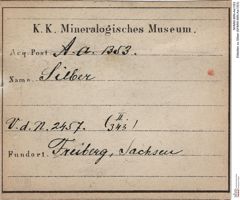 K. K. Mineralogisches Museum.
Acq. Post. A. a. 1353.
Name. Silber
V. d. N. 2457.
Fundort. Freiberg, Sachsen